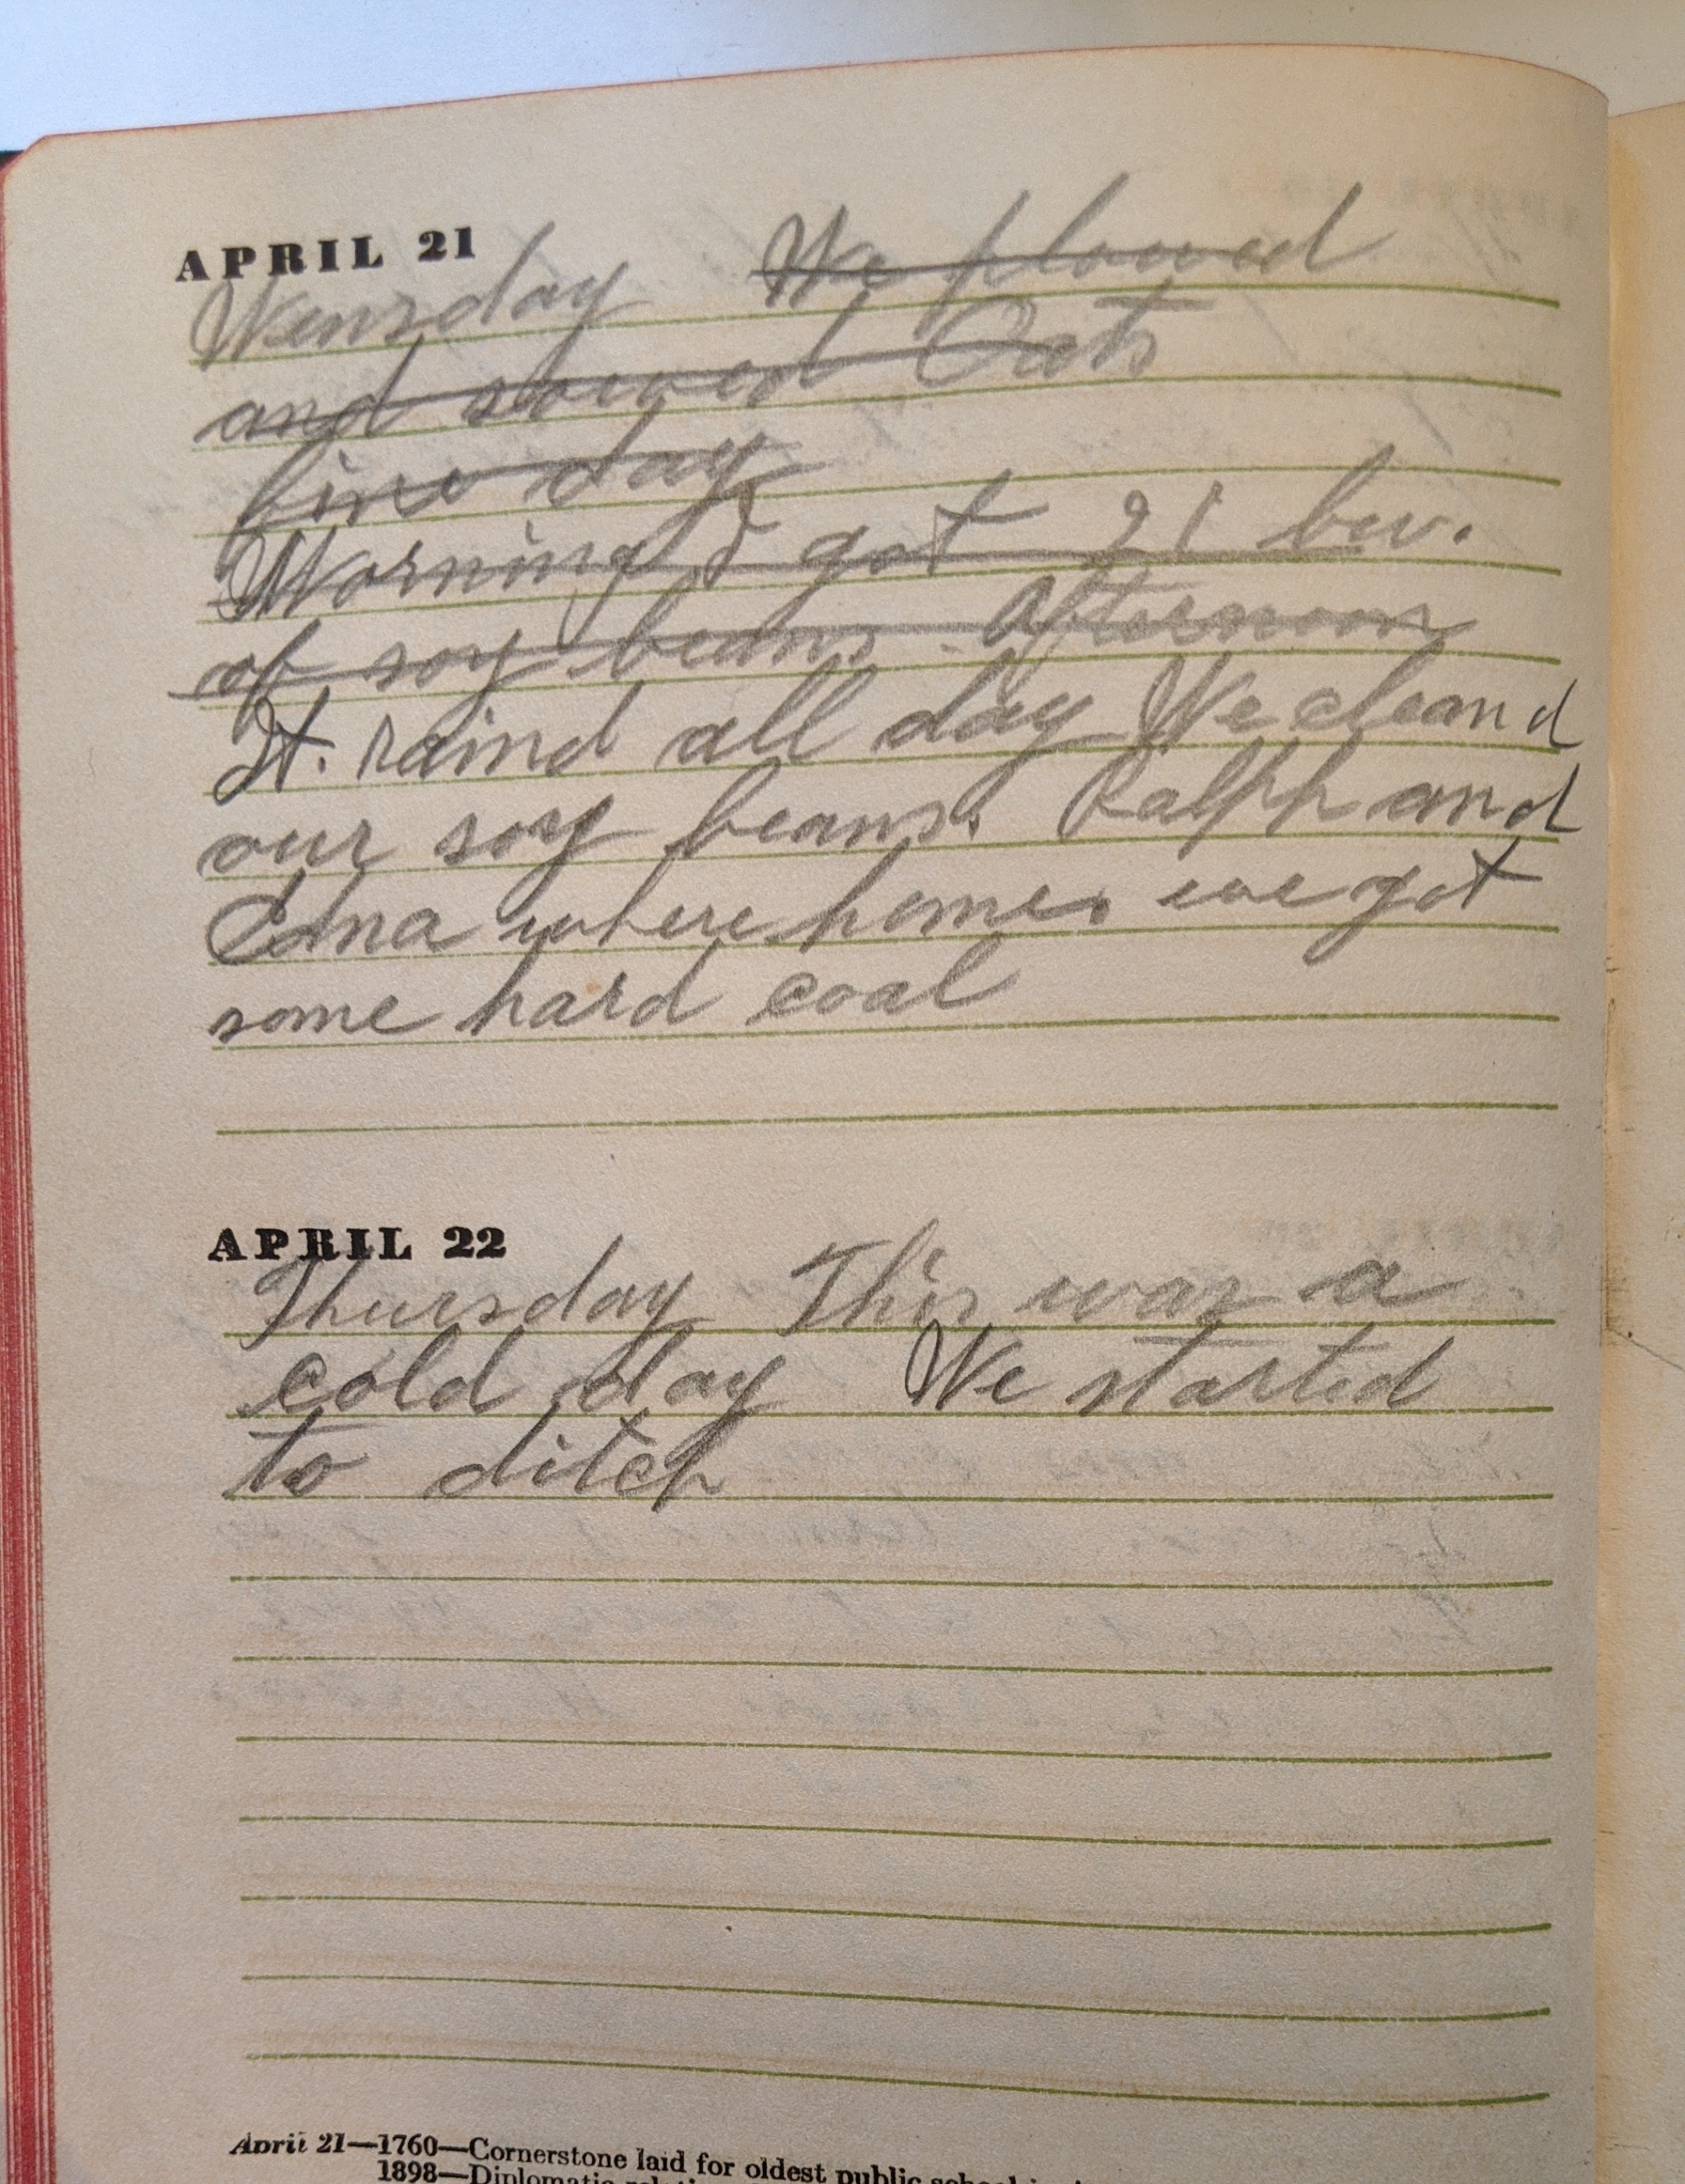 APRIL 21
Wensday We plowed
and sowed Oats
fine day
Morning I got 21 bu.
of soy beans. Afternoon
It. raind all day We cleand
our soy beans. Ralph and
Edna where home. we got
some hard coal
APRIL 22
Thursday This was a
cold day We started
to ditch
April 21—1760—Cornerstone laid for oldest public school in
1898—Diplomatic